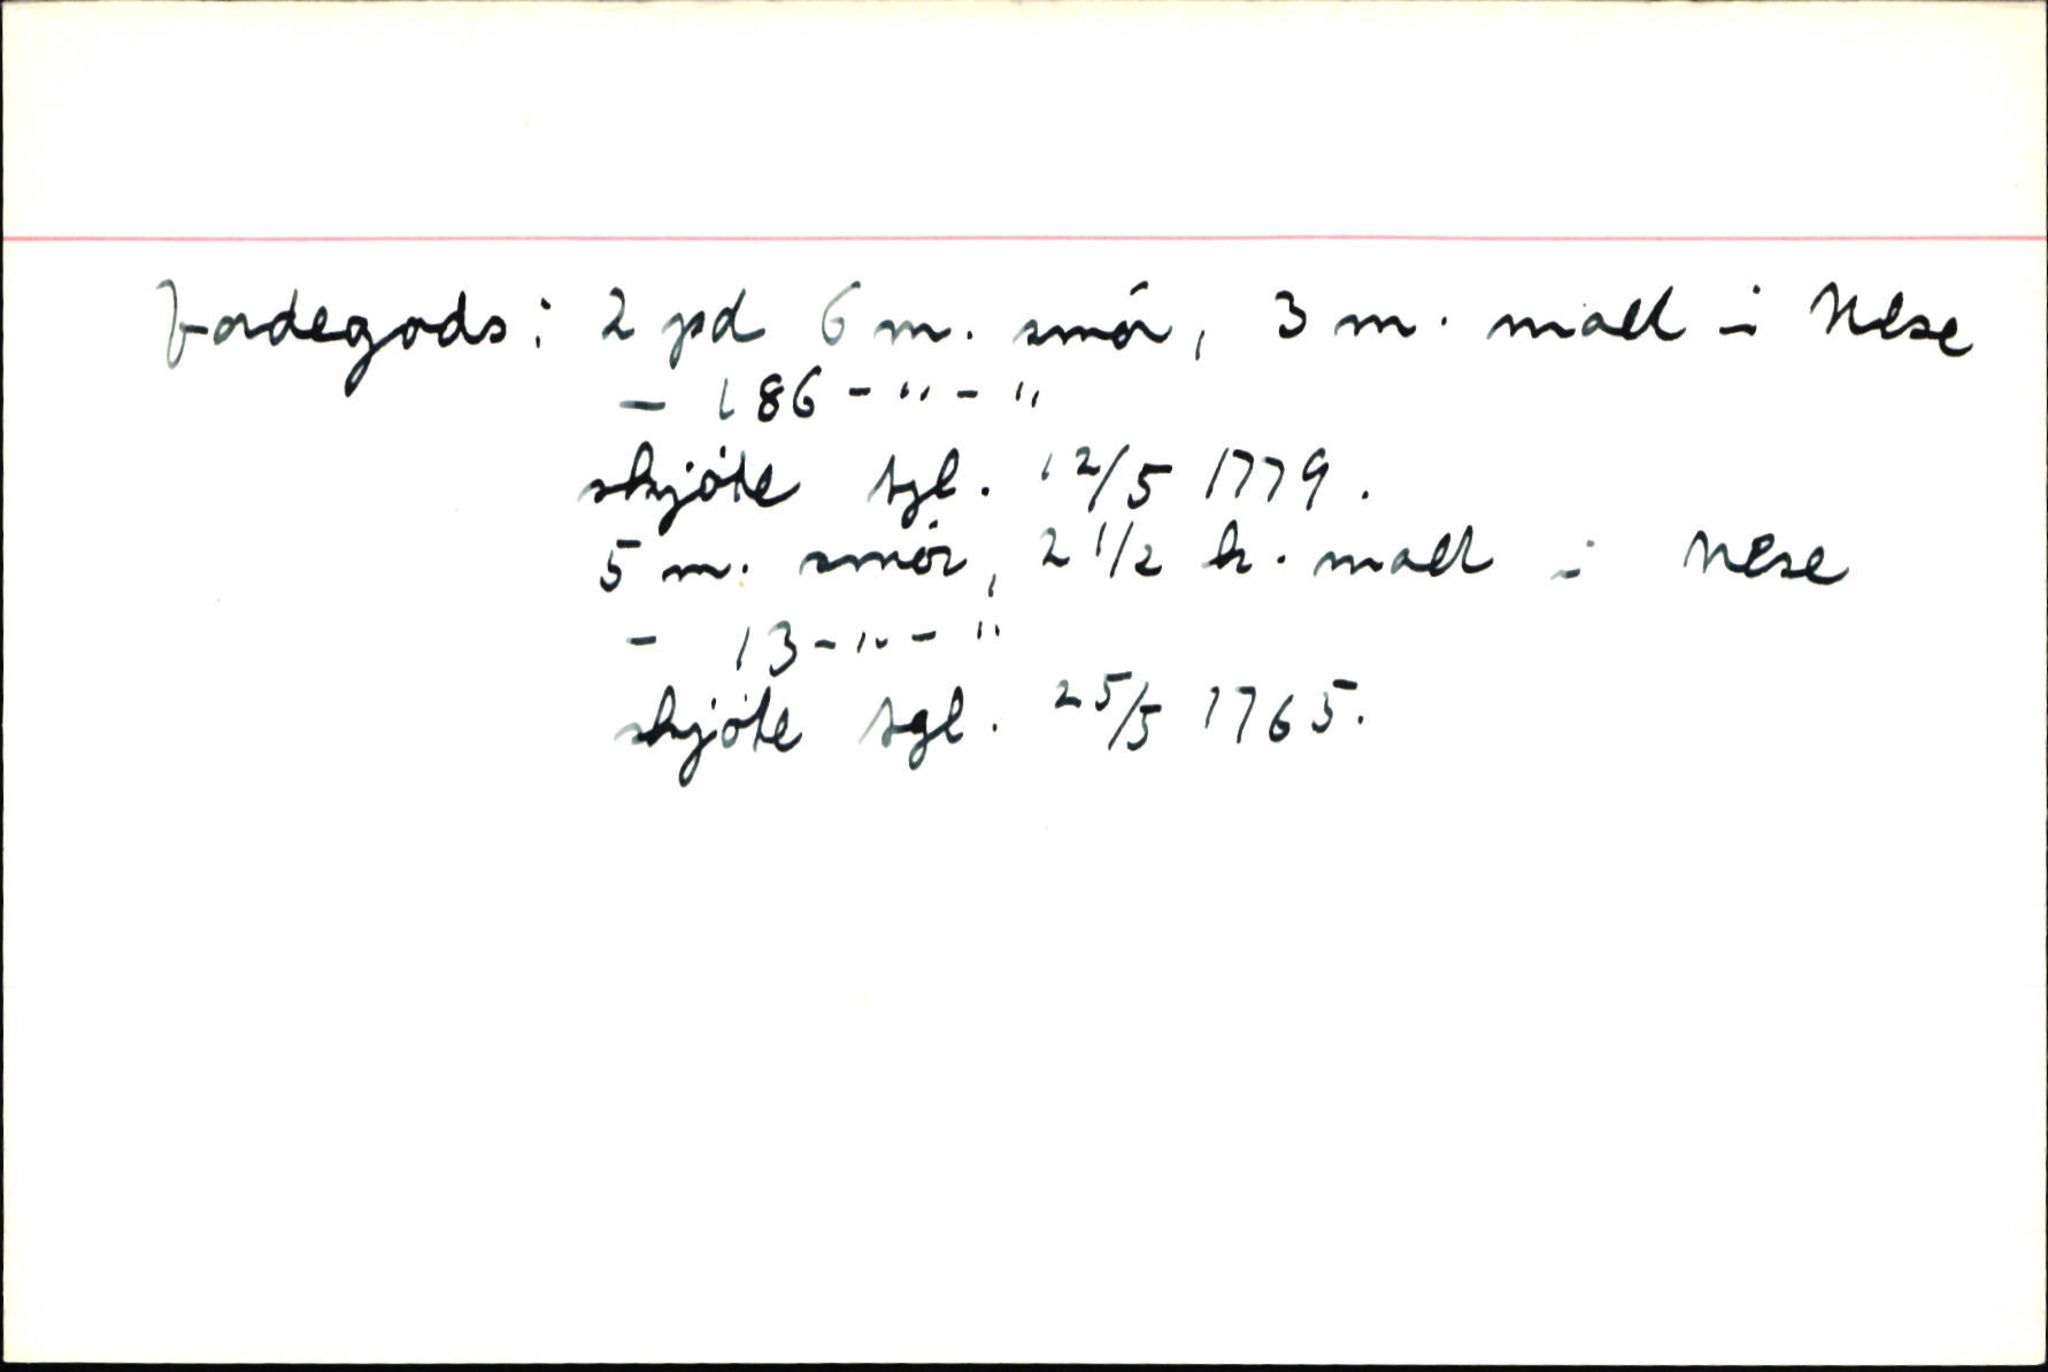 Jordegods: 2 pd 6 m. smör, 3 m. malt i Nese
– 186 - " - "
skjöte tgl. 12/5 1779.
5 m. smör, 2 1/2 k. malt i Nese
- 13 - " - "
skjöte tgl. 25/5 1765.